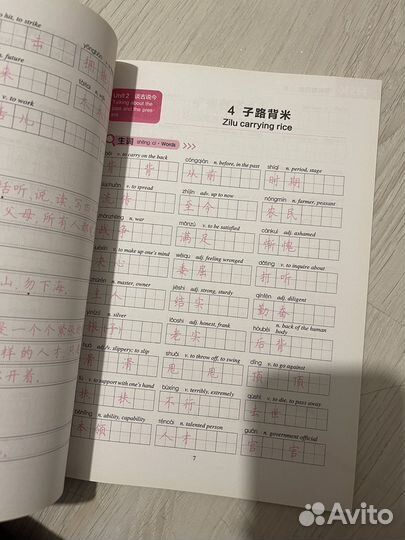 to hit, to strike
击
拥抱
n. future
来
v. to work
儿
听,说,读,写
父母,所有人都
山,勿下海。
是一个个
样的人才
开着。
Unit 2 谈古说今
Talking about the past and the present
4 子路背米
Zilu carrying rice
生词 shēngcí • Words
bēi v. to carry on the back
cóngqián n. before, in the past
shíqī n. period, stage
背 背
从前
时期
v. to spread
zhìjīn adv. up to now
nóngmín n. farmer, peasant
至今
农民
n. war
mǎnzú v. to be satisfied
cánkuì adj. ashamed
战争
满足
惭愧
v. to make up one's mind
wěiqu adj. feeling wronged
dǎting v. to inquire about
决心
委屈
打听
n. master, owner
jiēshi adj. strong, sturdy
qínfèn adj. diligent
主人
结实
勤奋
n. silver
lǎoshi adj. honest, frank
hòubèi n. back of the human body
银子
老实
后背
adj./v. slippery; to slip
shuǎi v. to throw off, to swing
dǐng v. to go against
滑 滑
甩 甩
顶 顶
v. to support with one's hand
bùxíng v. terribly, extremely
qùshì v. to die, to pass away
扶 扶
不行
去世
běnlǐng n. ability, capability
réncái n. talented person
guān n. government official
本领
人才
官 官
7
Avito